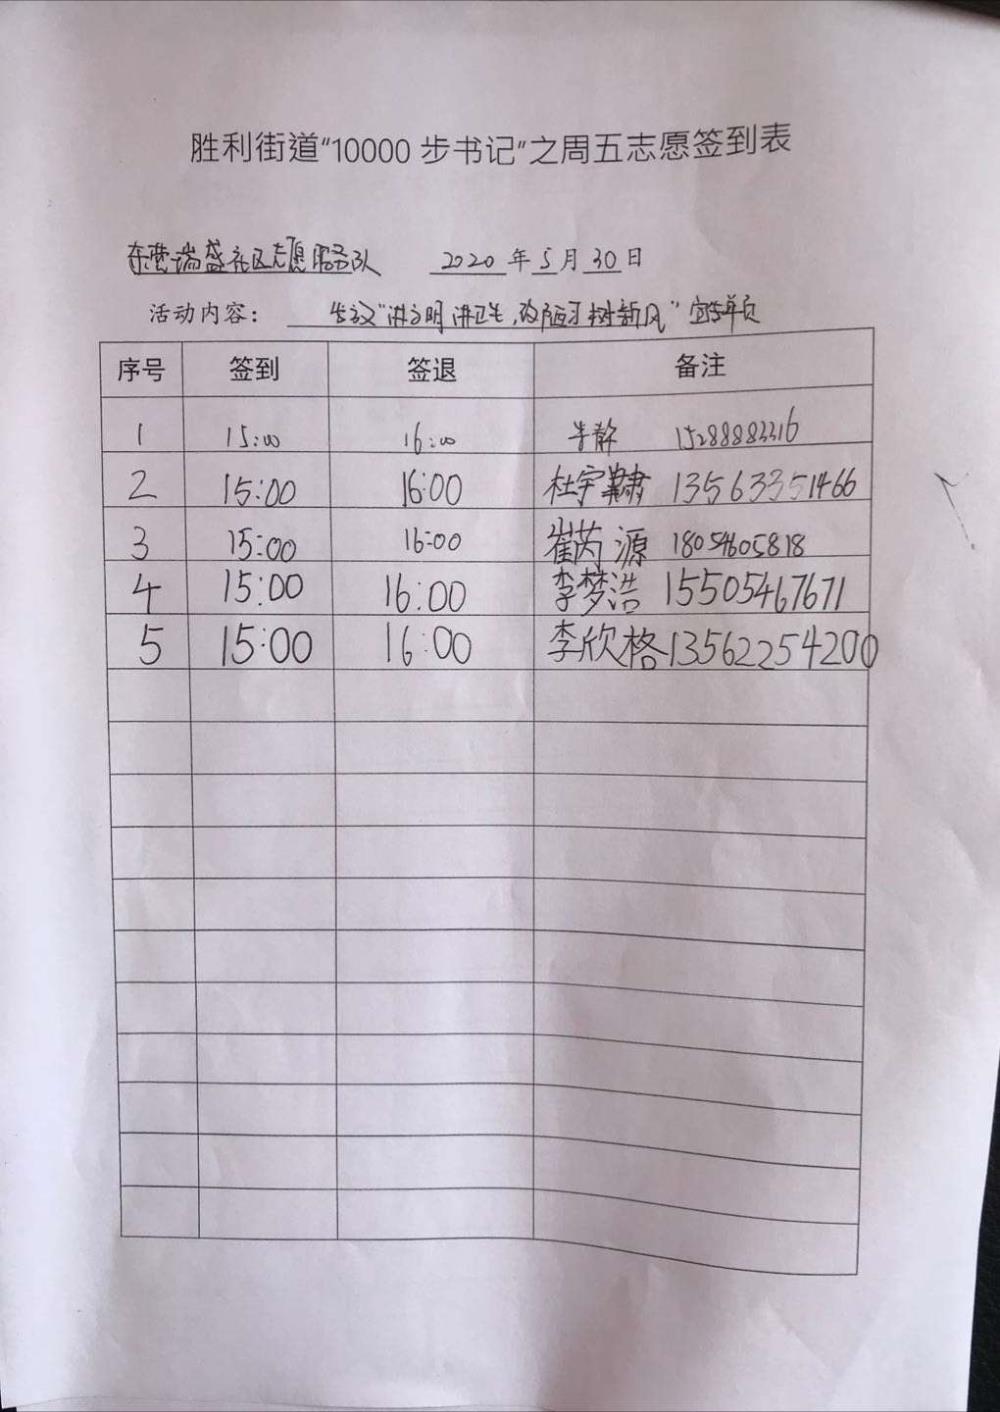 胜利街道“10000 步书记”之周五志愿签到表
东营瑞盛社区志愿服务队 2020 年 5 月 30 日
活动内容: 发放“讲文明讲卫生,改陋习树新风”宣传单页
序号 签到 签退 备注
1 15:00 16:00 15288883316
2 15:00 16:00 杜宇 13563351466
3 15:00 16:00 崔芮源 18054605818
4 15:00 16:00 李梦浩 15505467671
5 15:00 16:00 李欣格 13562254200